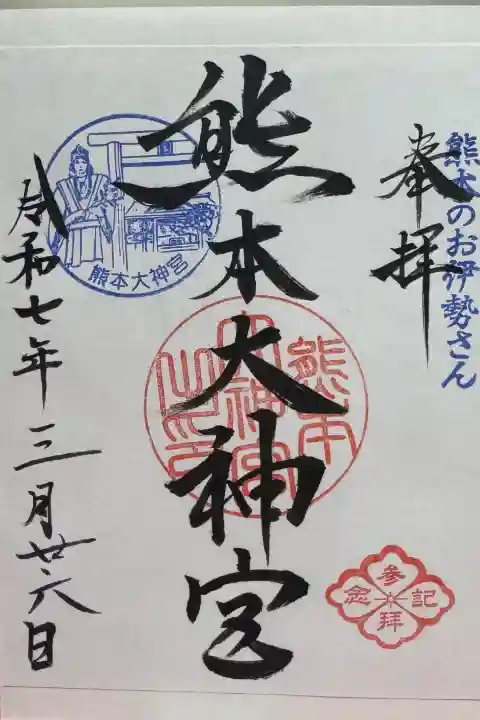 熊本のお伊勢さん
奉拝
熊本大神宮
熊本大神宮之印
熊本大神宮
令和七年三月廿六日
参拝記念